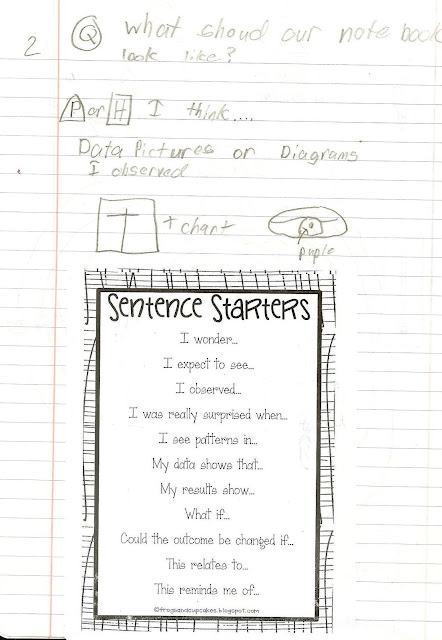 2 Q What shoud our note book
look like?
P or H I think....
Data Pictures or Diagrams
I observed
T + chart
puple
Sentence Starters
I wonder...
I expect to see...
I observed...
I was really surprised when...
I see patterns in...
My data shows that...
My results show...
What if...
Could the outcome be changed if...
This relates to...
This reminds me of...
©frogsandcupcakes.blogspot.com